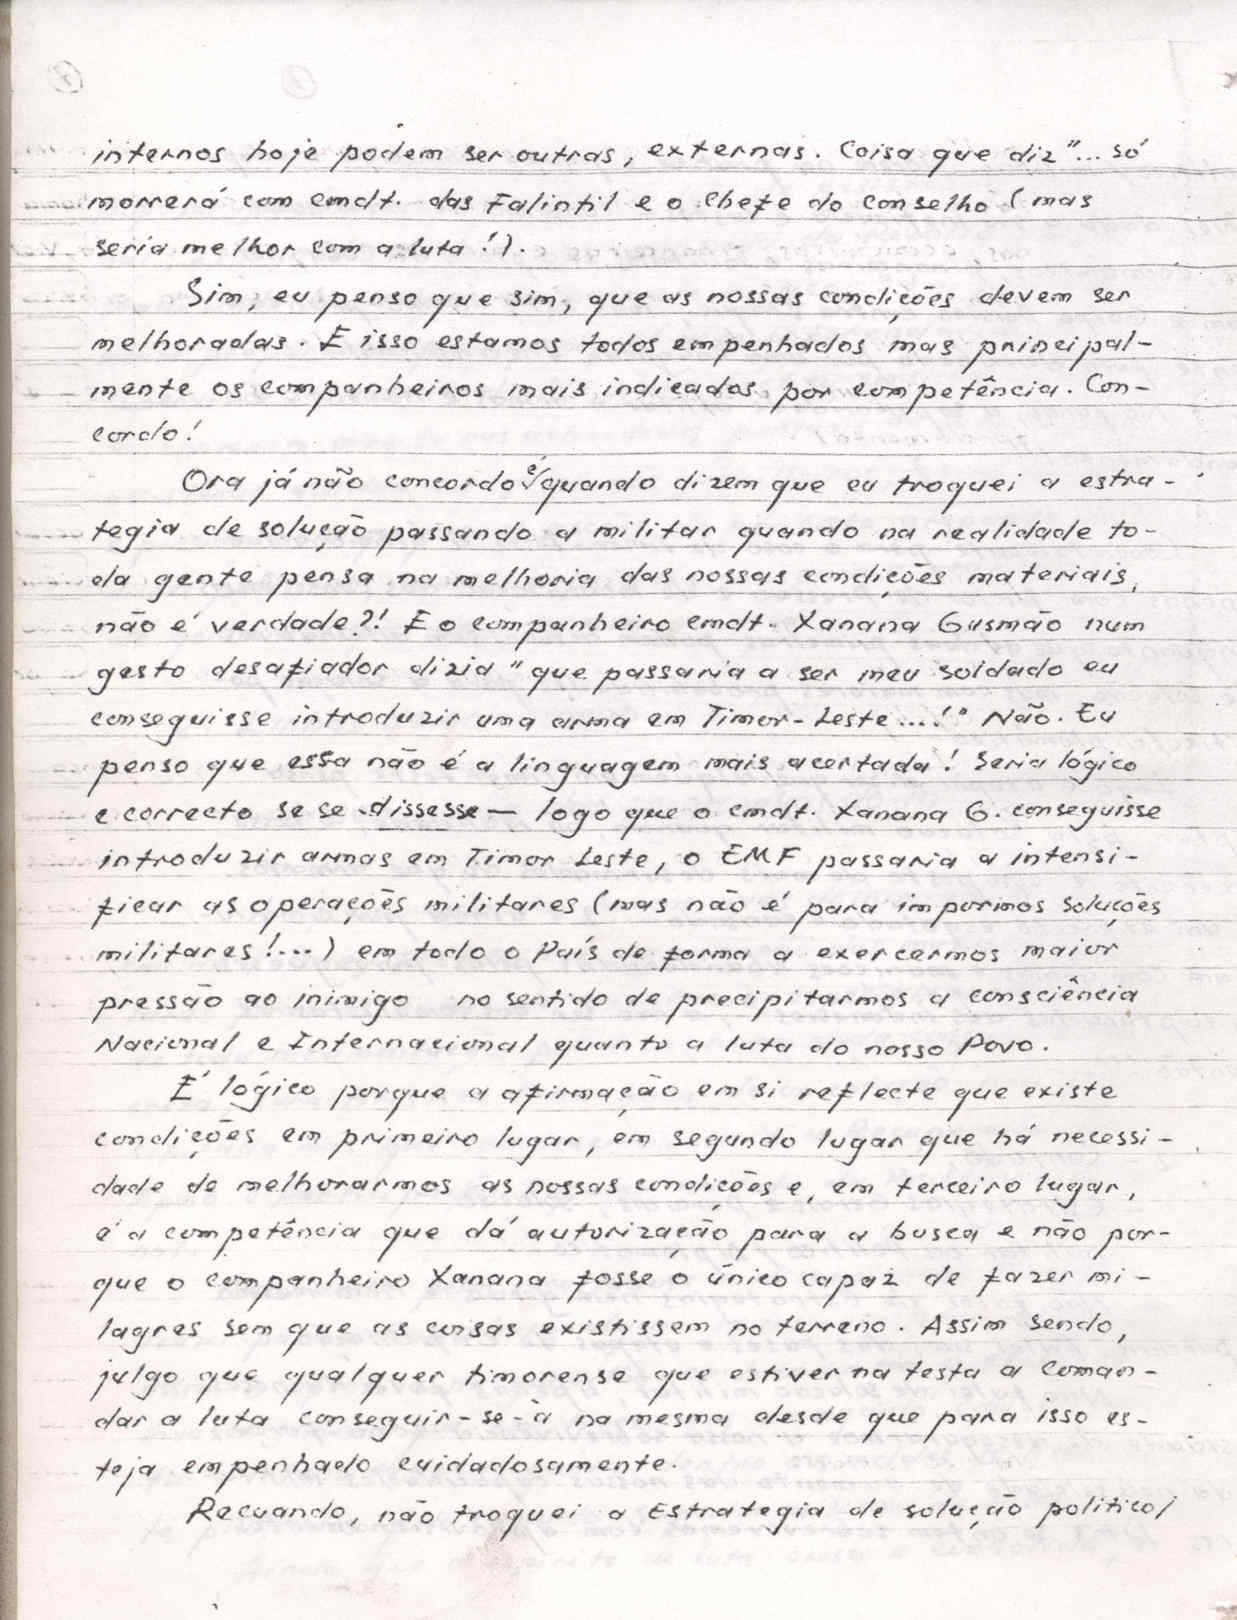 7
internos hoje podem ser outras, externas. Coisa que diz "... só
morrerá com cmdt. das Falintil e o chefe do conselho (mas
seria melhor com a luta!).
Sim, eu penso que sim, que as nossas condições devem ser
melhoradas. E isso estamos todos empenhados mas principal-
mente os companheiros mais indicados por competência. Con-
cordo!
Ora já não concordo é quando dizem que eu troquei a estra-
tegia de solução passando a militar quando na realidade to-
da gente pensa na melhoria das nossas condições materiais,
não é verdade?! E o companheiro cmdt. Xanana Gusmão num
gesto desafiador dizia "que passaria a ser meu soldado eu
conseguisse introduzir uma arma em Timor-Leste...!" Não. Eu
penso que essa não é a linguagem mais acertada! Seria lógico
e correcto se se dissesse — logo que o cmdt. Xanana G. conseguisse
introduzir armas em Timor Leste, o EMF passaria a intensi-
ficar as operações militares (mas não é para impormos soluções
militares!...) em todo o País de forma a exercermos maior
pressão ao inimigo no sentido de precipitarmos a consciência
Nacional e Internacional quanto a luta do nosso Povo.
É lógico porque a afirmação em si reflecte que existe
condições em primeiro lugar, em segundo lugar que há necessi-
dade de melhorarmos as nossas condições e, em terceiro lugar,
é a competência que dá autorização para a busca e não por-
que o companheiro Xanana fosse o único capaz de fazer mi-
lagres sem que as coisas existissem no terreno. Assim sendo,
julgo que qualquer timorense que estiver na testa a coman-
dar a luta conseguir-se-à na mesma desde que para isso es-
teja empenhado cuidadosamente.
Recuando, não troquei a Estrategia de solução politico/